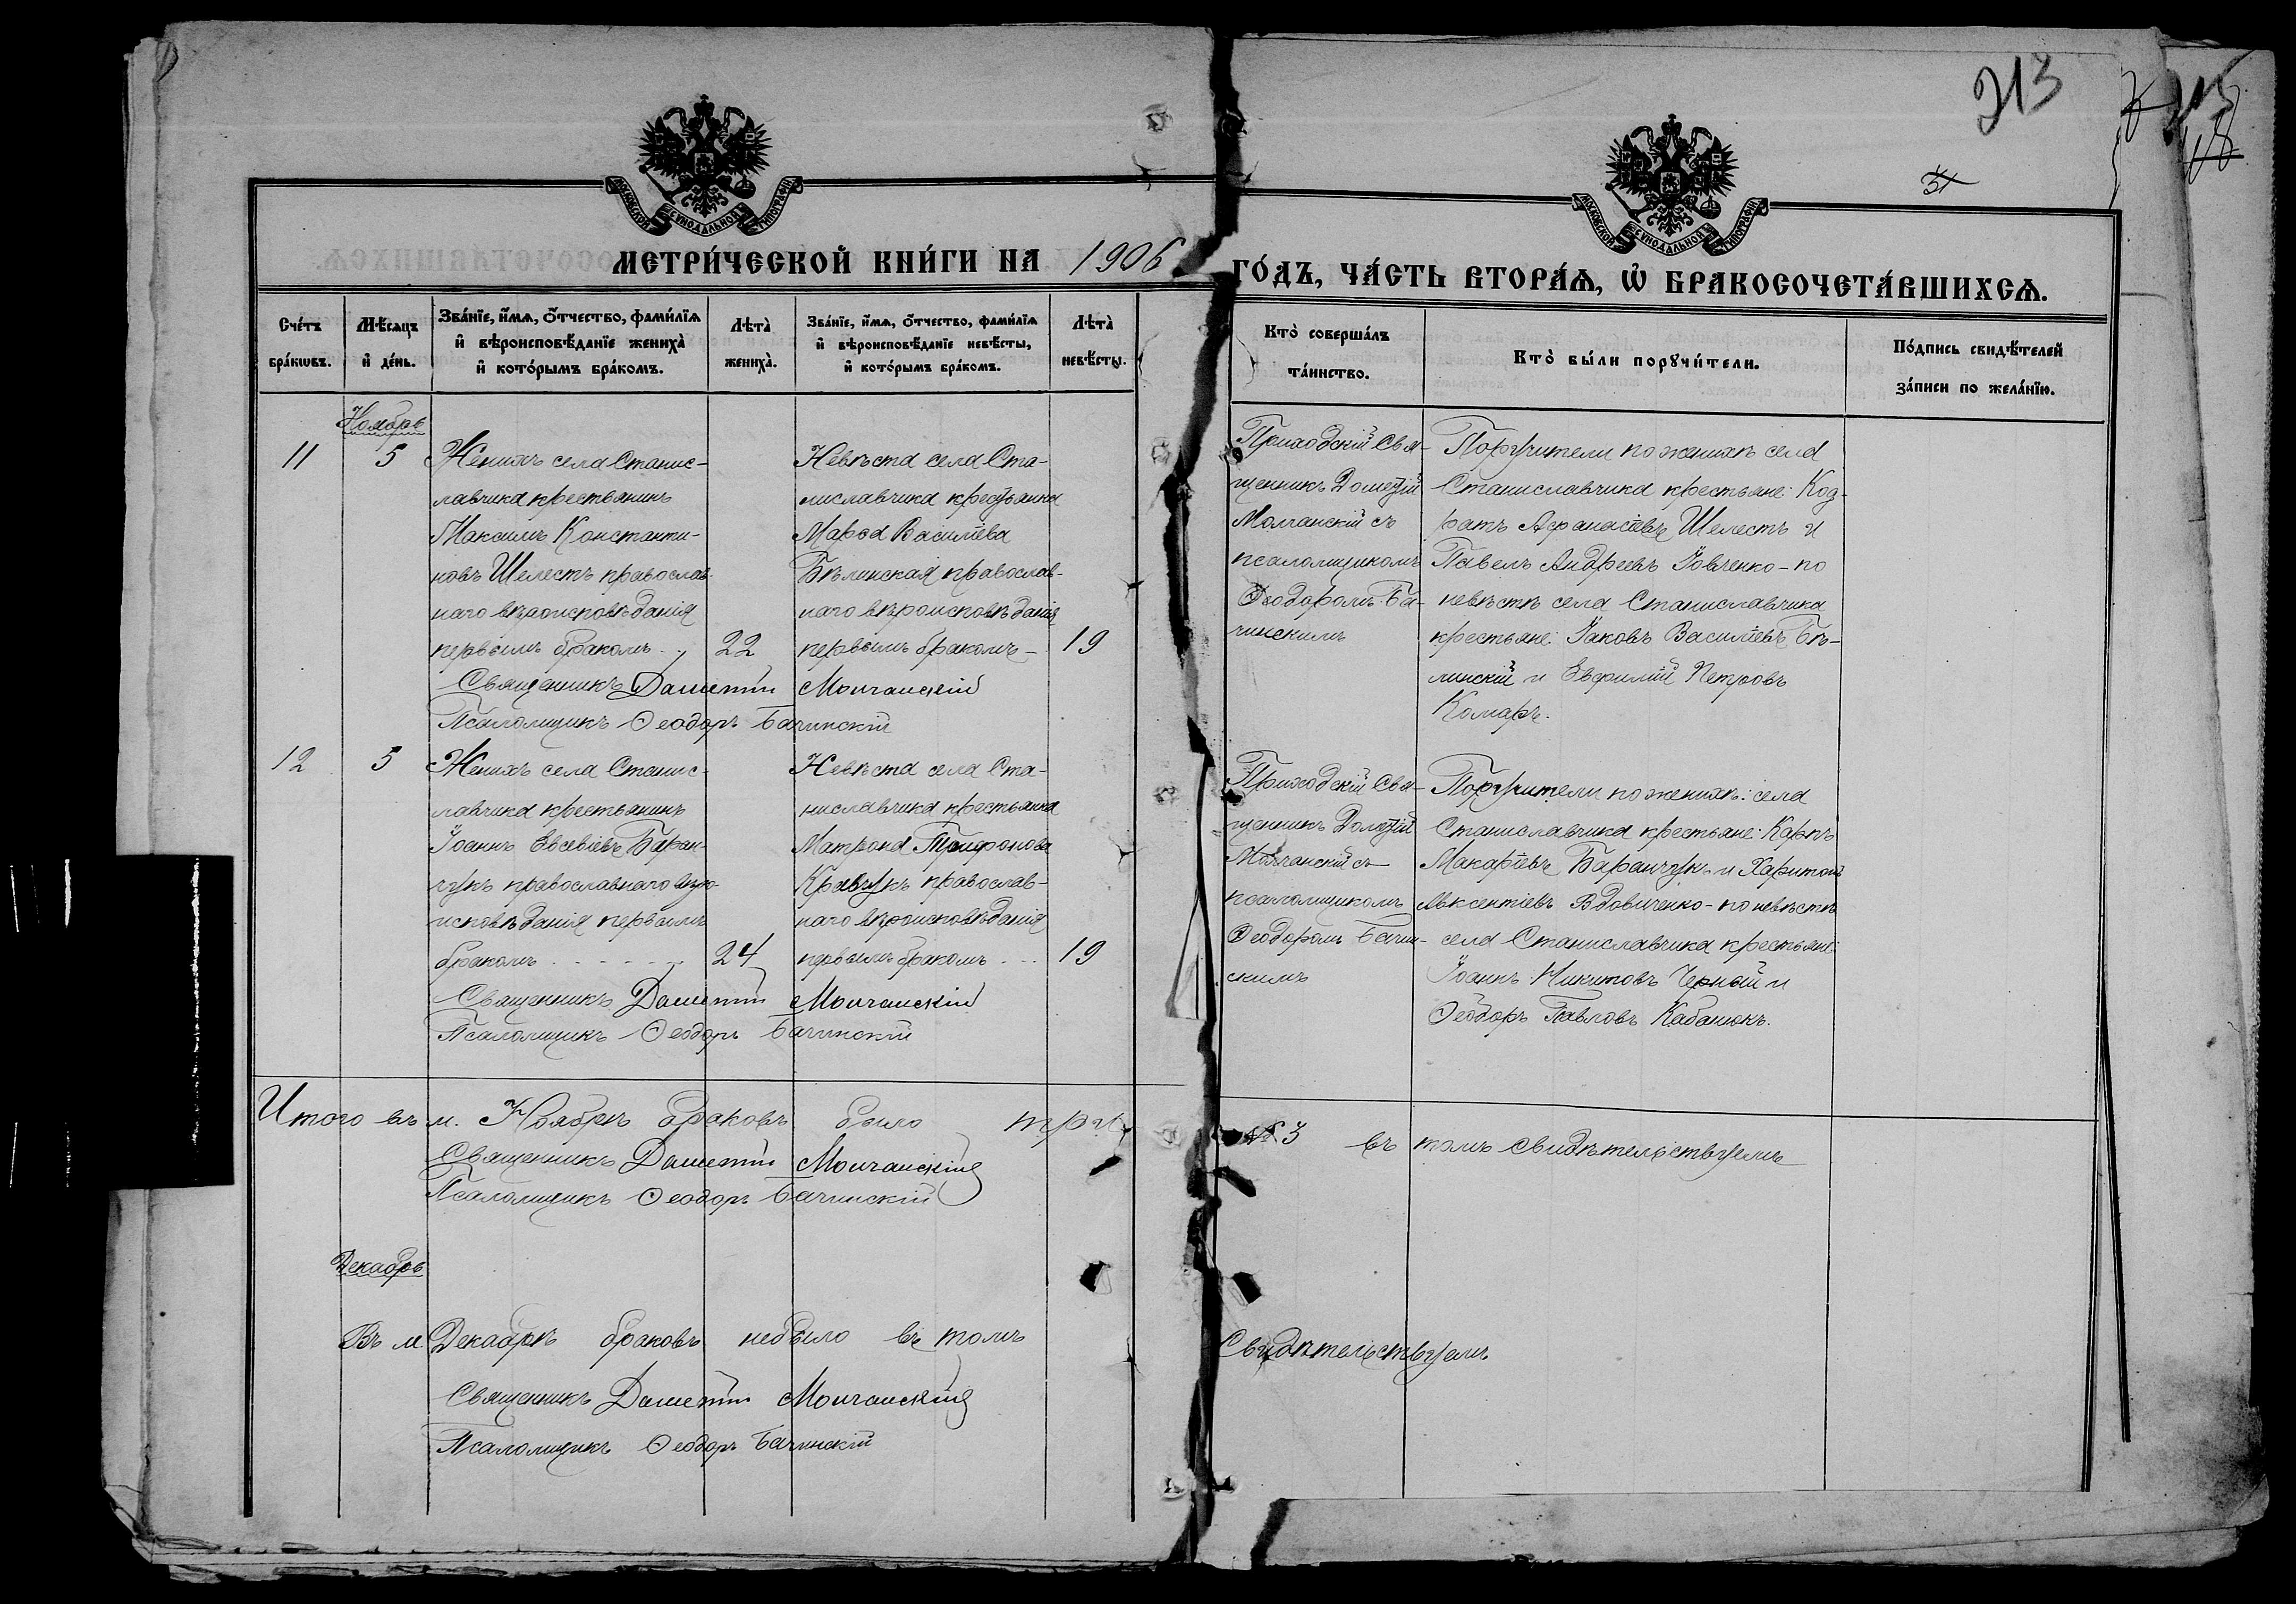 213
31
МОСКОВСКОЙ СѴНОДАЛЬНОЙ ТИПОГРАФІИ
МОСКОВСКОЙ СѴНОДАЛЬНОЙ ТИПОГРАФІИ
МЕТРИ́ЧЕСКОЙ КНИ́ГИ НА 1906
ГО́ДЪ, ЧА́СТЬ ВТОРА́Ѧ, Ѽ БРАКОСОЧЕТА́ВШИХСѦ.
Сче́тъ бра́кѡвъ.
Мѣ́сѧцъ и҆ де́нь.
Зва́нїе, и҆́мѧ, ѻ҆́тчество, фами́лїѧ и҆ вѣроисповѣ́данїе жениха̀ и҆ кото́рымъ бра́комъ.
Лѣта̀ жениха̀.
Зва́нїе, и҆́мѧ, ѻ҆́тчество, фами́лїѧ и҆ вѣроисповѣ́данїе невѣ́сты, и҆ кото́рымъ бра́комъ.
Лѣта̀ невѣ́сты.
Кто̀ соверша́лъ та́инство.
Кто̀ бы́ли порꙋчи́тели.
По́дпись свидѣ́телей за́писи по жела́нїю.
Ноябрь
11
5
Женихъ села Станис-
лавчика крестьянинъ
Максимъ Константи-
новъ Шелестъ православ-
наго вѣроисповѣданія
первымъ бракомъ
22
Невѣста села Ста-
ниславчика крестьянка
Марѳа Васильева
Бѣлинская православ-
наго вѣроисповѣданія
первымъ бракомъ –
19
Священникъ Дометій Молчанскій
Псаломщикъ Ѳеодоръ Бачинскій
Приходскій Свя-
щенникъ Дометій
Молчанскій съ
псаломщикомъ
Ѳеодоромъ Ба-
чинскимъ
Поручители по женихѣ села
Станиславчика крестьяне: Код-
ратъ Афанасіевъ Шелестъ и
Павелъ Андреевъ Іовченко – по
невѣстѣ села Станиславчика
крестьяне: Іаковъ Василіевъ Бѣ-
линскій и Евфимій Петровъ
Комаръ.
12
5
Женихъ села Станис-
лавчика крестьянинъ
Іоаннъ Евсевіевъ Баран-
чукъ православнаго вѣро-
исповѣданія первымъ
бракомъ
24
Невѣста села Ста-
ниславчика крестьянка
Матрона Трифонова
Кравчукъ православ-
наго вѣроисповѣданія
первымъ бракомъ
19
Священникъ Дометій Молчанскій
Псаломщикъ Ѳеодоръ Бачинскій
Приходскій Свя-
щенникъ Дометій
Молчанскій съ
псаломщикомъ
Ѳеодоромъ Бачин-
скимъ
Поручители по женихѣ: села
Станиславчика крестьяне: Карпъ
Макаріевъ Баранчукъ и Харитонъ
Авксентіевъ Вдовиченко – по невѣстѣ
села Станиславчика крестьяне:
Іоаннъ Никитовъ Черный и
Ѳеодоръ Павловъ Кабанюкъ.
Итого въ м. Ноябрѣ браковъ было три
№ 3 въ томъ свидѣтельствуемъ
Священникъ Дометій Молчанскій
Псаломщикъ Ѳеодоръ Бачинскій
Декабрь
Въ м. Декабрѣ браковъ небыло въ томъ
Свидѣтельствуемъ
Священникъ Дометій Молчанскій
Псаломщикъ Ѳеодоръ Бачинскій